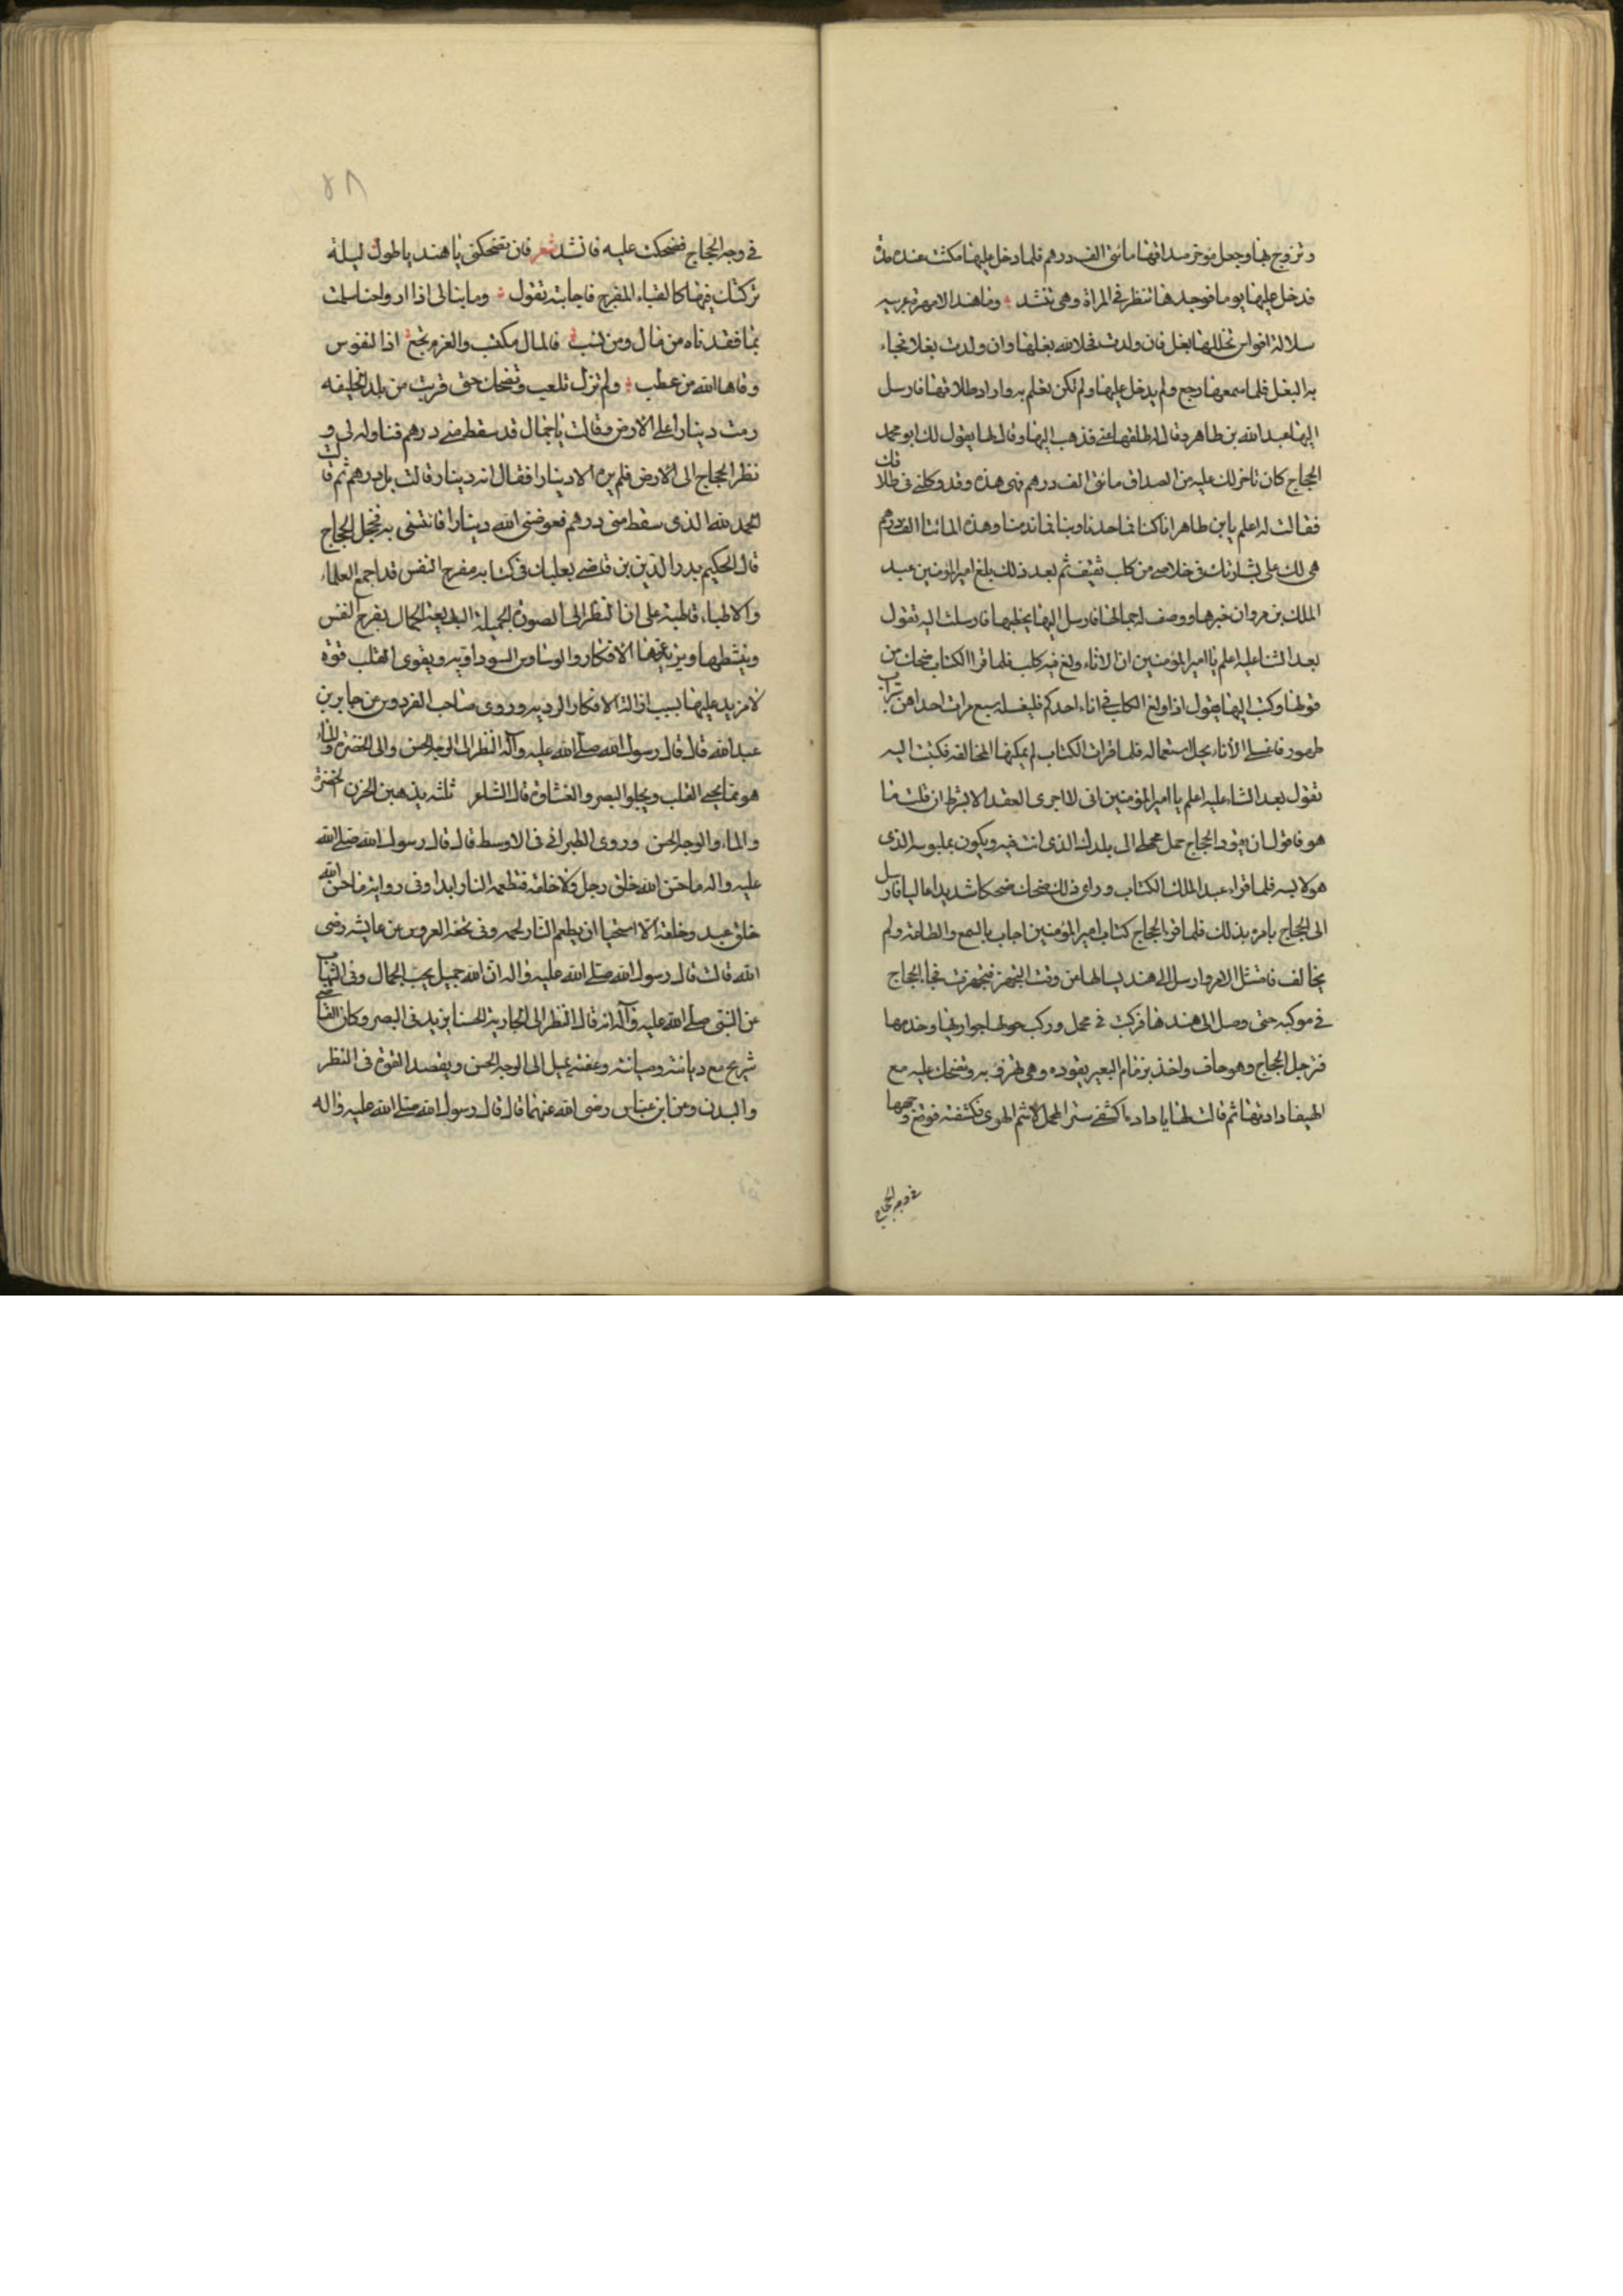 وتزوج بها وجعل مؤخر صداقها مائتى الف درهم فلما دخل عليها مكثت عنده مدة
فدخل عليها يوما فوجدها تنظر فى المراة وهى تنشد وما هند الا مهرة عربيه
سلالة افراس تحللها بغل فان ولدت فحلا لله بغلها وان ولدت بغلا فجاء
به البغل فلما سمعها رجع ولم يدخل عليها ولم تكن تعلم به واراد طلاقها فارسل
اليها عبد الله بن طاهر وقال له طلقها عنى فذهب اليها وقال لها يقول لك ابو محمد
الحجاج كان تاخر لك عليه من الصداق مائتى الف درهم فهى هذه وقد وكلنى فى طلاقك
فقالت له اعلم يابن طاهر انا كنا فما حمدنا وبنا فما ندمنا وهذه المائتا الف درهم
هى لك على بشارتك فى خلاصى من كلب ثقيف ثم بعد ذلك بلغ امير المؤمنين عبد
الملك بن مروان خبرها ووصف له جمالها فارسل اليها يخطبها فارسلت اليه تقول
بعد الثنا عليه اعلم يا امير المؤمنين ان الاناء ولغ فيه كلب فلما قرا الكتاب ضحك من
قولها وكتب اليها يقول اذا ولغ الكلب فى اناء احدكم فليغسله سبع مرات احداهن بتراب
طهور فاغسلى الأناء يحل استعماله فلما قرات الكتاب لم يمكنها المخالفه فكتبت اليه
تقول بعد الثناء عليه اعلم يا امير المؤمنين انى لا اجرى العقد الا بشرط ان قلت ما
هو فاقول ان يقود الحجاج محملى الى بلدك الذى انت فيه ويكون بملبوسه الذى
هو لابسه فلما قراء عبد الملك الكتاب وراى ذلك ضحك ضحكا شديدا عاليا فارسل
الى الحجاج يامره بذلك فلما قرا الحجاج كتاب امير المؤمنين اجاب بالسمع والطاعه ولم
يخالف فامتثل الامر وارسل الى هند يسالها من وقت التجهز فتجهزت فجاء الحجاج
فى موكبه حتى وصل الى هند فركبت فى محمل وركب حولها جواريها وخدمها
فترجل الحجاج وهو حاف واخذ بزمام البعير يقوده وهى تطرف به وتضحك عليه مع
الهيفا دادتها ثم قالت لها يا داده اكشفى ستر المحمل لاشم الهوى فكشفته فوقع وجهها
فى وجه الحجاج
٥٨
فى وجه الحجاج فضحكت عليه فانشد شعر فان تضحكى يا هند يا طول ليلة
تركتك فيها كالقباء المفرج فاجابته تقول وما نبالى اذا ارواحنا سلمت
بما فقدناه من مال ومن نشب فالمال مكتسب والعز مرتجع اذا النفوس
وقاها الله من عطب ولم تزل تلعب وتضحك حتى قربت من بلد الخليفه
رمت دينارا على الارض وقالت يا جمال قد سقط منى درهم فناوله لى و
نظر الحجاج الى الارض فلم يره الا دينارا فقال انه دينار قالت بل درهم ثم قالت
الحمد لله الذى سقط منى درهم فعوضنى الله دينارا فانتشفى به فخجل الحجاج
قال الحكيم بدر الدين بن قاضى بعلبك فى كتابه مفرح النفس قد اجمع العلماء
والاطباء قاطبة على ان النظر الى الصورة الجميلة البديعة الجمال يفرح النفس
وينشطها ويزيل عنها الافكار والوساوس السوداويه ويقوى القلب قوة
لا مزيد عليها بسبب ازالة الافكار الرديه وروى صاحب الفردوس عن جابر بن
عبد الله قال قال رسول الله صلى الله عليه وآله النظر الى الوجه الحسن والى الخضرة والماء
هو مما يحيى القلب ويجلو البصر والغشاوة قال الشاعر ثلثه يذهبن الحزن الخضرة
والماء والوجه الحسن وروى الطبرانى فى الاوسط قال قال رسول الله صلى الله
عليه واله ما حسن الله خلق رجل ولا خلقه فتطعمه النار ابدا وفى رواية ما حسن الله
خلق عبد وخلقه الا استحيا ان يطعم النار لحمه وفى تحفة العروس عن عايشه رضى
الله قالت قال رسول الله صلى الله عليه واله ان الله جميل يحب الجمال وفى الشهاب
عن النبى صلى الله عليه وآله انه قال النظر الى الجارية الحسنا يزيد فى البصر وكان القاضى
شريح مع ديانته وصيانته وعفته يميل الى الوجه الحسن ويقصد القوة فى النظر
والبدن وعن ابن عباس رضى الله عنهما قال قال رسول الله صلى الله عليه واله